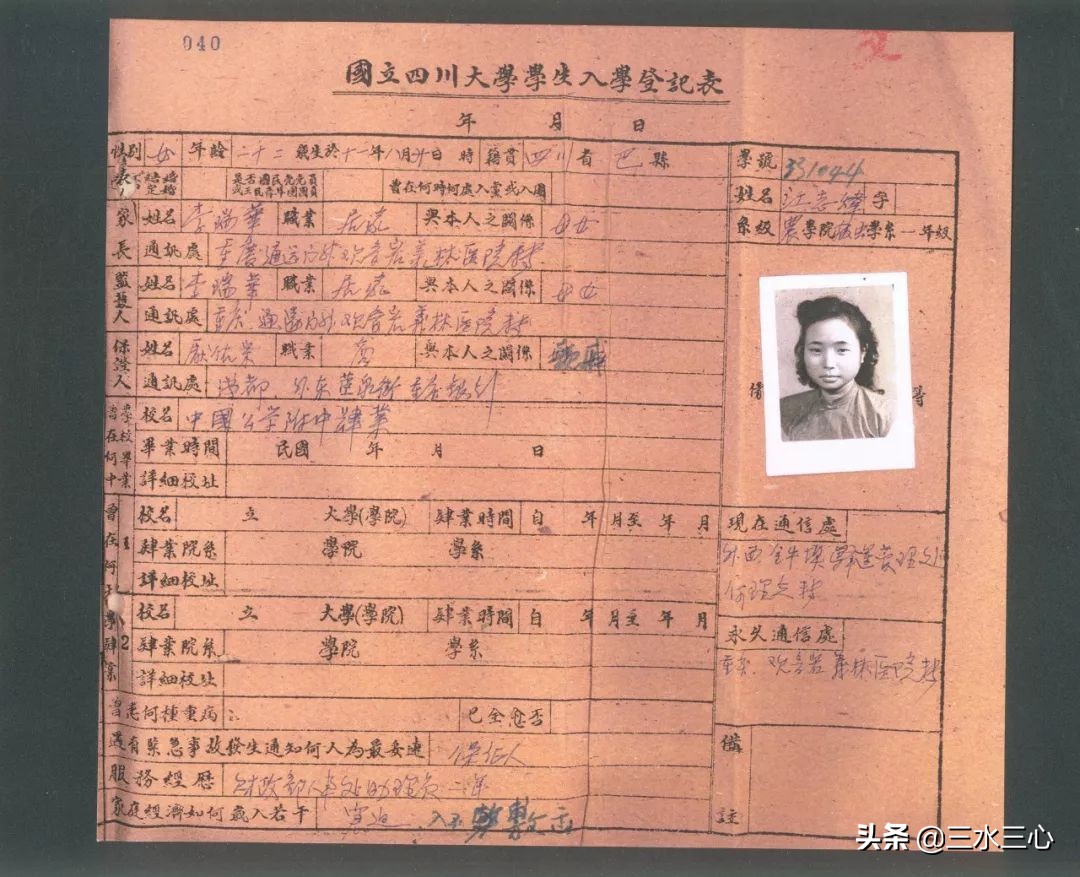 040
國立四川大學學生入學登記表
年 月 日
性别 女 年齡 二十二 歲生於十一年八月廿日 時 籍貫 四川 省 巴 縣
學號 331044
結婚 定婚 是否國民党党員或三民青年團團員 曾在何時何處入黨或入團
姓名 江志煒 字
系級 農學院 學系一年級
家長 姓名 李瑞華 職業 居家 與本人之關係 母女
通訊處 重慶通远门外观音岩義林医院转
監護人 姓名 李瑞華 職業 居家 與本人之關係 母女
通訊處 重庆 通遠门外观音岩義林医院转
保證人 姓名 職業 商 與本人之關係
通訊處 成都 外东
曾在何中學校畢業 校名 中國公学附中肄業
畢業時間 民國 年 月 日
詳細校址
曾在何 學肄業 1 校名 立 大學(學院) 肄業時間 自 年 月至 年 月
肄業院系 學院 學系
詳細校址
2 校名 立 大學(學院) 肄業時間 自 年 月至 年 月
肄業院系 學院 學系
詳細校址
現在通信處
外西 金牛壩 管理处
何理立转
永久通信處
重庆 观音岩 義林医院转
曾患何種重病 已全愈否
遇有緊急事故發生通知何人為最妥速 保证人
服務經歷 财政部人事处助理员 一年
家庭經濟如何歲入若干 窘迫 入不敷出
備註
头条 @三水三心